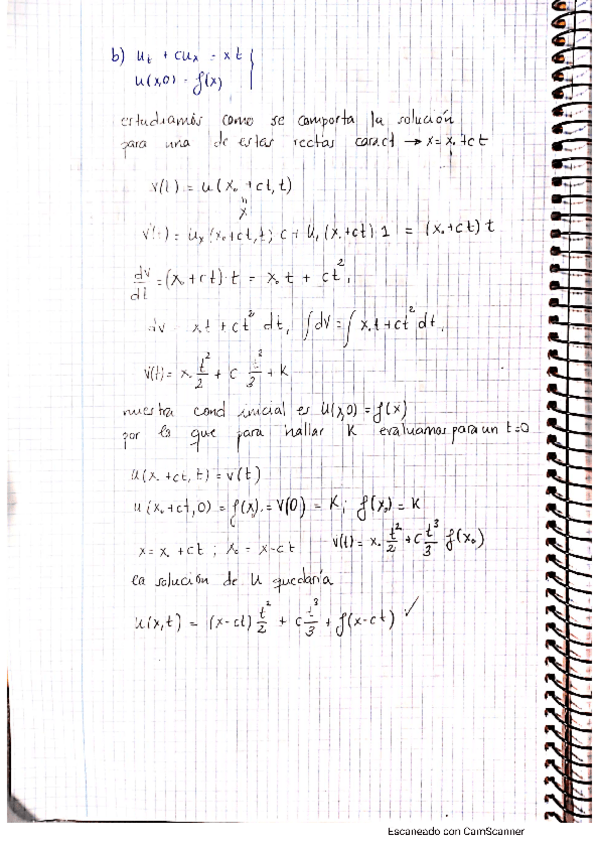 b) ut + cux = xt
u(x,0) = f(x)
estudiamos como se comporta la solución
para una de estas rectas caract → x = x₀ + ct
v(t) = u(x₀ + ct, t)
x
v'(t) = ux (x₀+ct, t) c + ut (x₀+ct) 1 = (x₀+ct) t
dv/dt = (x₀+ct)·t = x₀t + ct²,
dv = x₀t + ct² dt, ∫dv = ∫ x₀t + ct² dt,
v(t) = x₀ t²/2 + c t³/3 + K
nuestra cond inicial es u(x,0) = f(x)
por lo que para hallar K evaluamos para un t=0
u(x₀ + ct, t) = v(t)
u(x₀+ct,0) = f(x₀) = v(0) = K; f(x₀) = K
x = x₀ + ct ; x₀ = x-ct v(t) = x₀ t²/2 + c t³/3 f(x₀)
la solución de u quedaría
u(x,t) = (x-ct) t²/2 + c t³/3 + f(x-ct) ✓
Escaneado con CamScanner